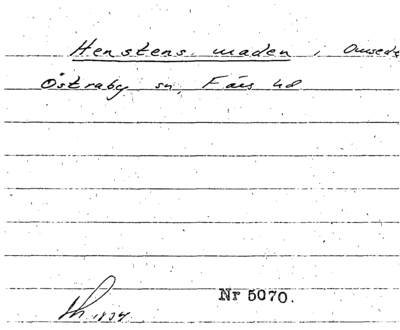 Henstens maden, Onseds
Östraby sn, Färs hd
Nr 5070.